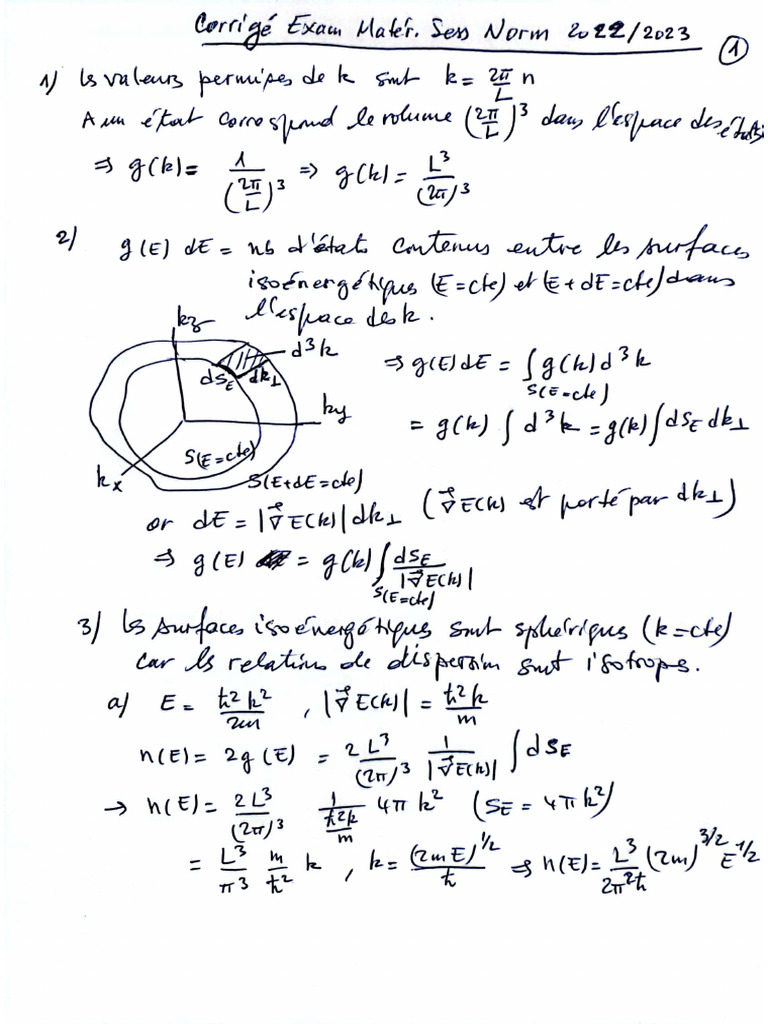 Corrigé Exam Matér. Sess Norm 2022/2023
①
1) les valeurs permises de k sont k = 2π/L n
A un état correspond le volume (2π/L)^3 dans l'espace des états
⇒ g(k) = 1/(2π/L)^3 ⇒ g(k) = L^3/(2π)^3
2) g(E) dE = nb d'états contenus entre les surfaces
isoénergétiques (E=cte) et (E+dE=cte) dans
l'espace des k.
kz
d^3k
dS_E dk⊥
ky
kx
S(E=cte)
S(E+dE=cte)
⇒ g(E) dE = ∫_{S(E=cte)} g(k) d^3k
= g(k) ∫ d^3k = g(k) ∫ dS_E dk⊥
or dE = |∇⃗E(k)| dk⊥ (∇⃗E(k) est porté par dk⊥)
⇒ g(E) = g(k) ∫_{S(E=cte)} dS_E/|∇⃗E(k)|
3) les surfaces isoénergétiques sont sphériques (k=cte)
car les relations de dispersion sont isotropes.
a) E = ħ^2k^2/2m , |∇⃗E(k)| = ħ^2k/m
n(E) = 2g(E) = 2L^3/(2π)^3 1/|∇⃗E(k)| ∫ dS_E
→ n(E) = 2L^3/(2π)^3 1/(ħ^2k/m) 4πk^2 (S_E = 4πk^2)
= L^3/π^3 m/ħ^2 k , k = (2mE)^1/2/ħ ⇒ n(E) = L^3/2π^2ħ (2m)^3/2 E^1/2